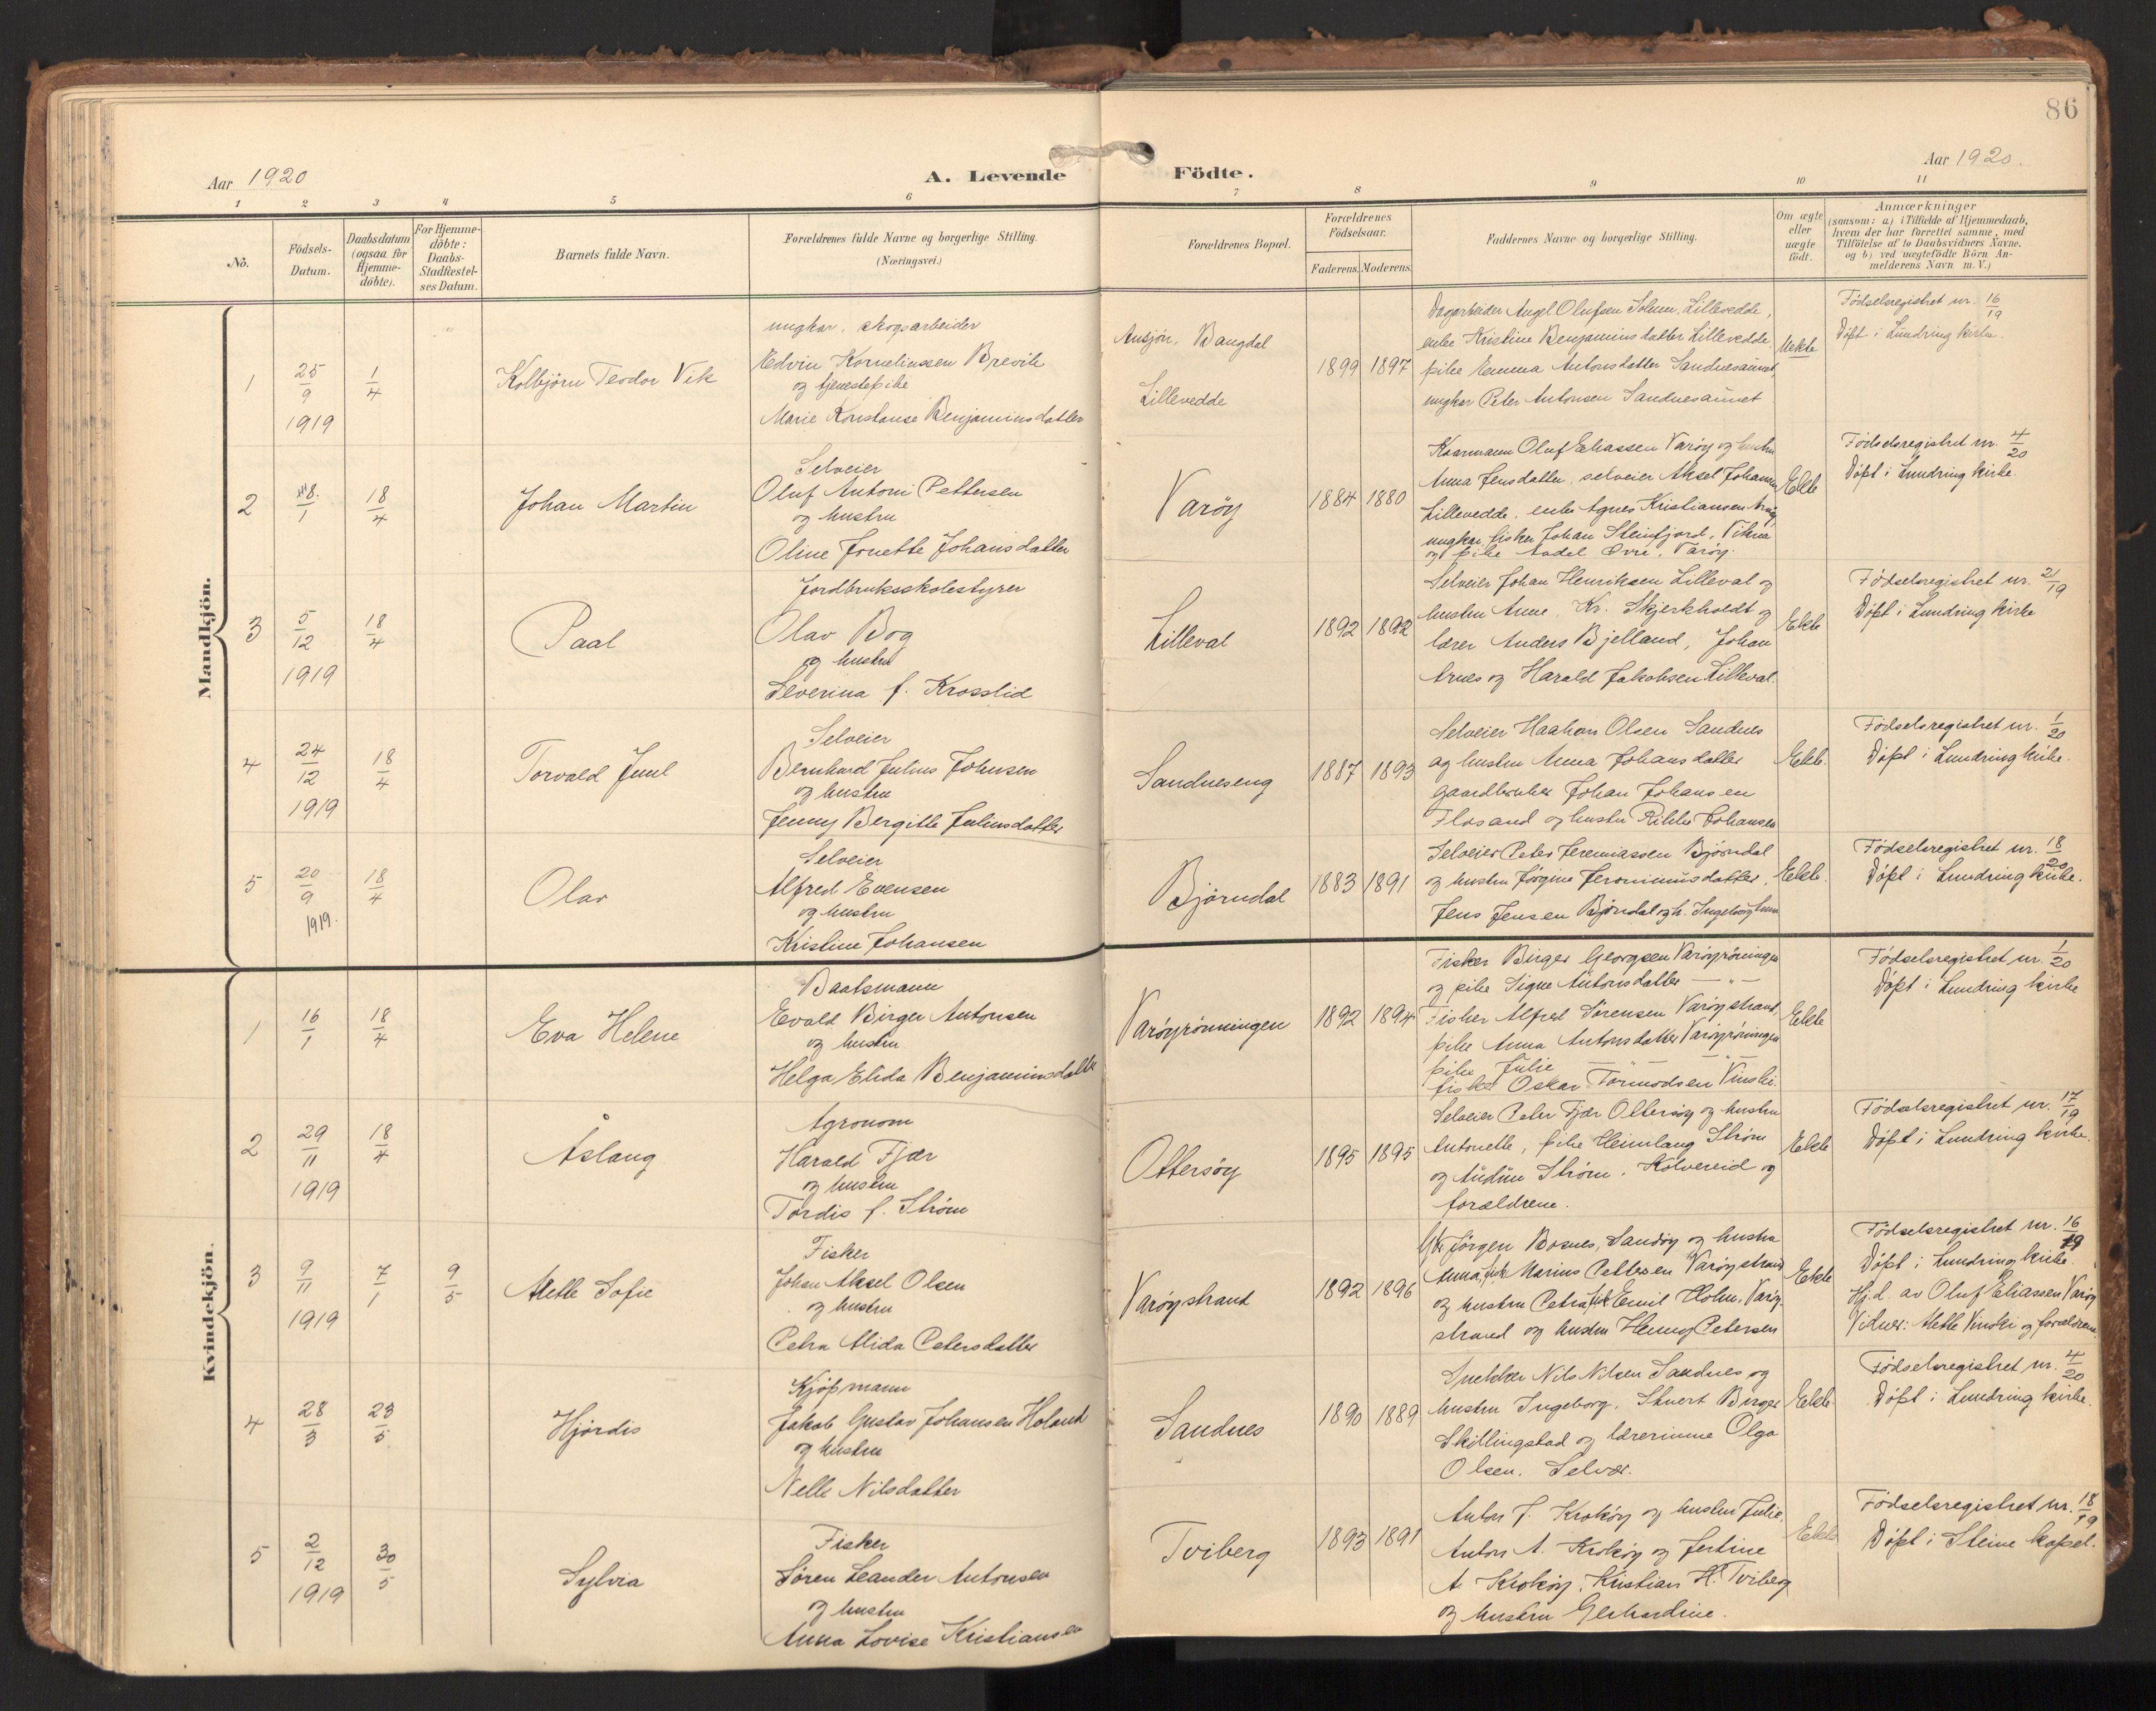 86
Aar 1920
A. Levende
Födte.
Aar 1920.
1 2 3 4 5 6 7 8 9 10 11
Nô.
Födsels-
Datum.
Daabsdatum
(ogsaa for
Hjemme-
döbte).
For Hjemme-
döbte:
Daabs-
Stadfæstel-
ses Datum.
Barnets fulde Navn.
Forældrenes fulde Navne og borgerlige Stilling.
(Næringsvei.)
Forældrenes Bopæl.
Forældrenes
Födselsaar.
Faderens. Moderens.
Faddernes Navne og borgerlige Stilling.
Om ægte
eller
uægte
födt.
Anmærkninger
(saasom: a) i Tilfælde af Hjemmedaab,
hvem der har forrettet samme, med
Tilföielse af to Daabsvidners Navne.
og b) ved uægtefödte Börn An-
melderens Navn m.V.)
Mandkjön.
1
25/9
1919
1/4
Kolbjörn Teodor Vik
ungkar, skogsarbeider
Edvin Korneliussen Brevik
og tjenestepike
Marie Konstanse Benjaminsdatter
Ausjön, Bangdal
Lillevedde
1899 1897
Dagarbeider Angel Olufsen Solum, Lillevedde,
enke Kristine Benjaminsdatter Lillevedde
pike Emma Antonsdatter Sandnesaunet,
ungkar Peter Antonsen Sandnesaunet
Uekte
Fødselsregistret nr. 16/19
Døpt i Lundring kirke.
2
18/1
18/4
Johan Martin
Selveier
Oluf Antoni Pettersen
og hustru
Oline Jonette Johansdatter
Varøy
1884 1880
Oluf Eliassen Varøy og hustru
Anna Jensdatter, selveier Aksel Johansen
Lillevedde, enke Agnes Kristiansen
ungkar, fisker Johan Steinfjord, Vikna
og pike Øvre, Varøy.
Ekte
Fødselsregistret nr. 4/20
Døpt i Lundring kirke
3
5/12
1919
18/4
Paal
Jordbruksskolestyrer
Olav Bog
og hustru
Severina f. Krosslid
Lilleval
1892 1892
Selveier Johan Henriksen Lilleval og
hustru Anne, Kr. Skjerkholdt og
lærer Anders Bjelland, Johan
Arnes og Harald Jakobsen Lilleval.
Ekte
Fødselsregistret nr. 21/19
Døpt i Lundring kirke
4
24/12
1919
18/4
Torvald Juul
Selveier
Bernhard Julius Johnsen
og hustru
Jenny Bergitte Juliusdatter
Sandneseng
1887 1893
Selveier Haakon Olsen Sandnes
og hustru Anna Johansdatter
gaardbruker Johan Johansen
Flosand og hustru Rikke Johansen
Ekte.
Fødselsregistret nr. 1/20
Døpt i Lundring kirke.
5
20/9
1919.
18/4
Olav
Selveier
Alfred Evensen
og hustru
Kristine Johansen
Bjørndal
1883 1891
Selveier Peter Jeremiassen Bjørndal
og hustru Jørgine Jeronimusdatter,
Jens Jensen Bjørndal og h. Ingeborg Anna
Ekte.
Fødselsregistret nr. 18/20
Døpt i Lundring kirke.
Kvindekjön.
1
16/1
18/4
Eva Helene
Baatsmann
Evald Birger Antonsen
og hustru
Helga Elida Benjaminsdatter
Varøyrønningen
1892 1894
Fisker Birger Georgsen Varøyrøningen
og pike Signe Antonsdatter — " —
Fisker Alfred Sørensen Varøystrand,
pike Anna Antonsdatter Varøyrøningen
pike Julie — " — — " —
fisker Oskar Tormodsen Vinski.
Ekte
Fødselsregistret nr. 1/20
Døpt i Lundring kirke
2
29/11
1919
18/4
Åslaug
Agronom
Harald Fjær
og hustru
Tordis f. Strøm
Ottersøy
1895 1895
Selveier Peter Fjær Ottersøy og hustru
Antonette, pike Heimlaug Strøm
og Audun Strøm, Kolvereid og
forældrene.
Ekte
Fødselsregistret nr. 17/19
Døpt i Lundring kirke.
3
9/11
1919
7/1
9/5
Mette Sofie
Fisker
Johan Aksel Olsen
og hustru
Petra Alida Petersdatter
Varøystrand
1892 1896
Gbr. Jørgen Bosnes, Sandøy og hustru
Anna, fisk. Marius Pettersen Varøystrand
og hustru Petra, fisk. Emil Holm, Varøy-
strand og hustru Henny Petersen
Ekte
Fødselsregistret nr. 16/19
Døpt i Lundring kirke.
Hj.d. av Oluf Eliassen Varøy
Vidner: Mette Vinski og forældrene.
4
28/3
23/5
Hjørdis
Kjøpmann
Jakob Gustav Johansen Holand
og hustru
Nelle Nilsdatter
Sandnes
1890 1889
Snekker Nils Nilsen Sandnes og
hustru Ingeborg, Stuert Birger
Skillingstad og lærerinne Olga
Olsen, Selvær.
Ekte
Fødselsregistret nr. 4/20
Døpt i Lundring kirke.
5
2/12
1919
30/5
Sylvia
Fisker
Søren Leander Antonsen
og hustru
Anna Lovise Kristiansen
Tviberg
1893 1891
Anton J. Krokøy og hustru Julie,
Anton A. Krokøy og Jertine
A. Krokøy, Kristian H. Tviberg
og hustru Gerhardine.
Ekte
Fødselsregistret nr. 18/19
Døpt i Steine kapel.